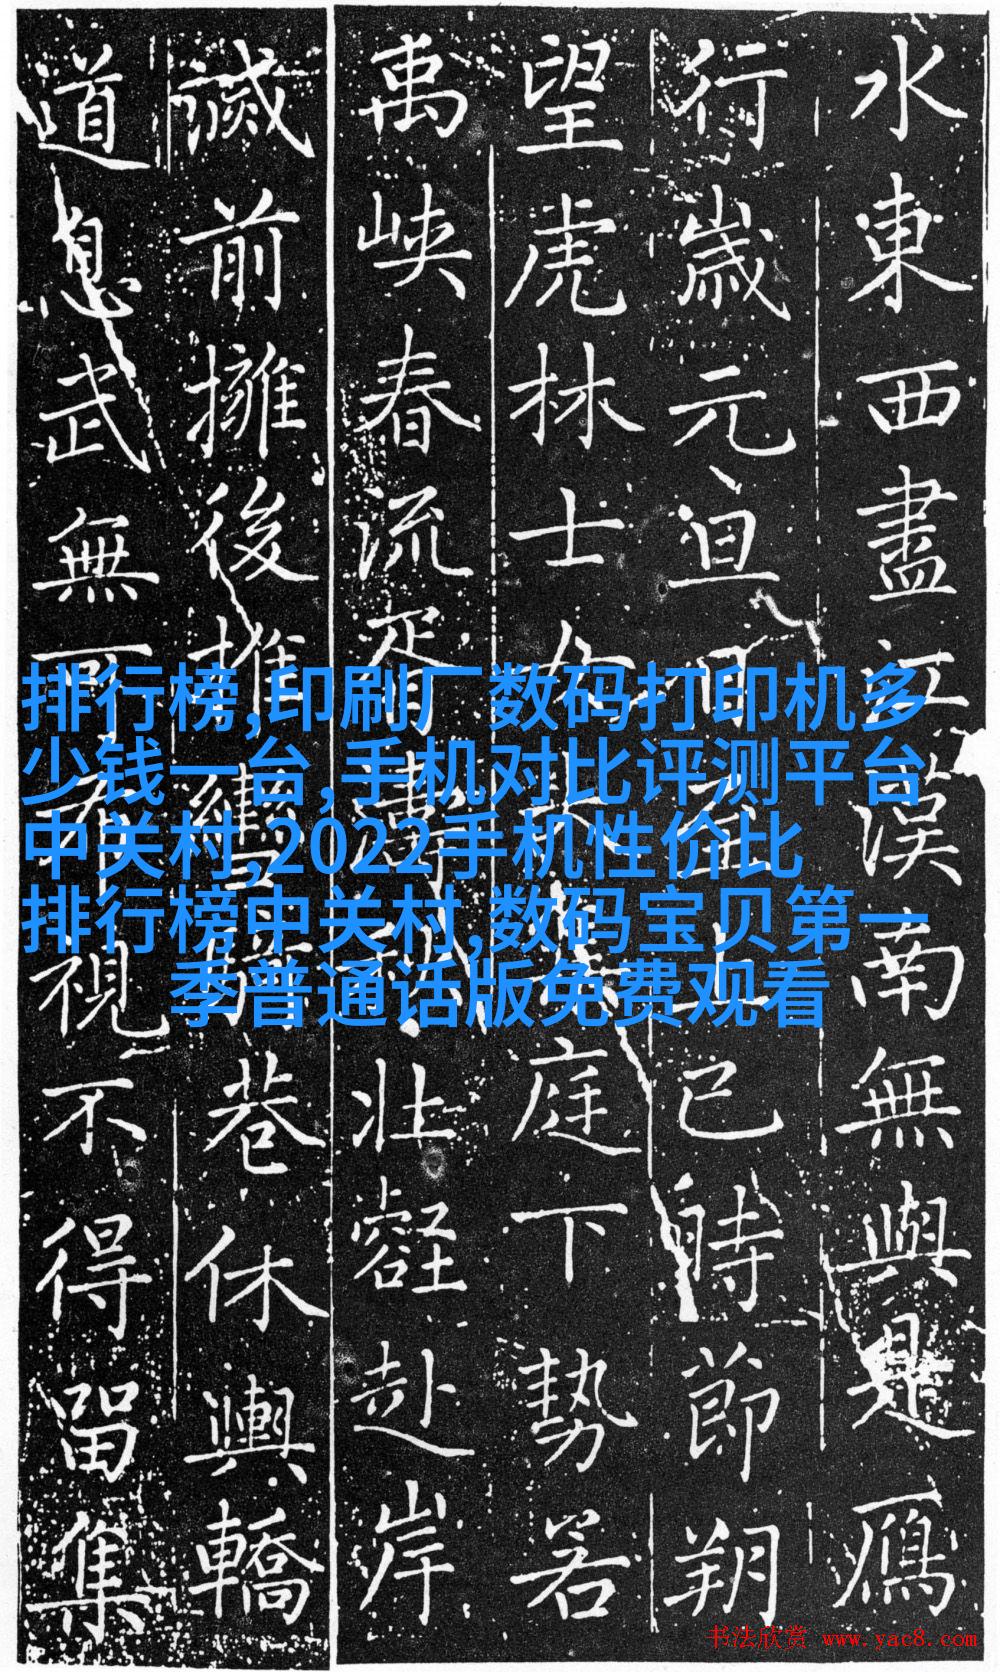 排行榜,印刷厂数码打印机多
少钱一台,手机对比评测平台
中关村,2022手机性价比
排行榜中关村,数码宝贝第一
季普通话版免费观看
水東西盡江漢南無與是鴈
行歲元旦日至上巳時節朔
望虎林士女庭下勢若
禹峽春流胥濤秋壯壑赴岸
前擁後推巷休輿轎
道息武無可視不得留集
书法欣赏 www.yac8.com